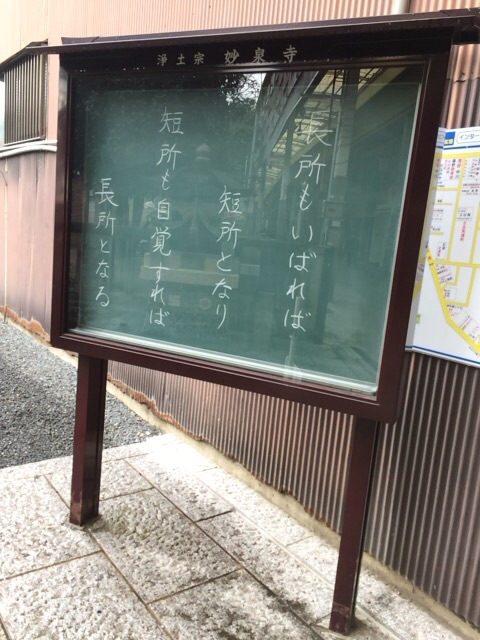 浄土宗 妙泉寺
長所もいばれば
短所となり
短所も自覚すれば
長所となる